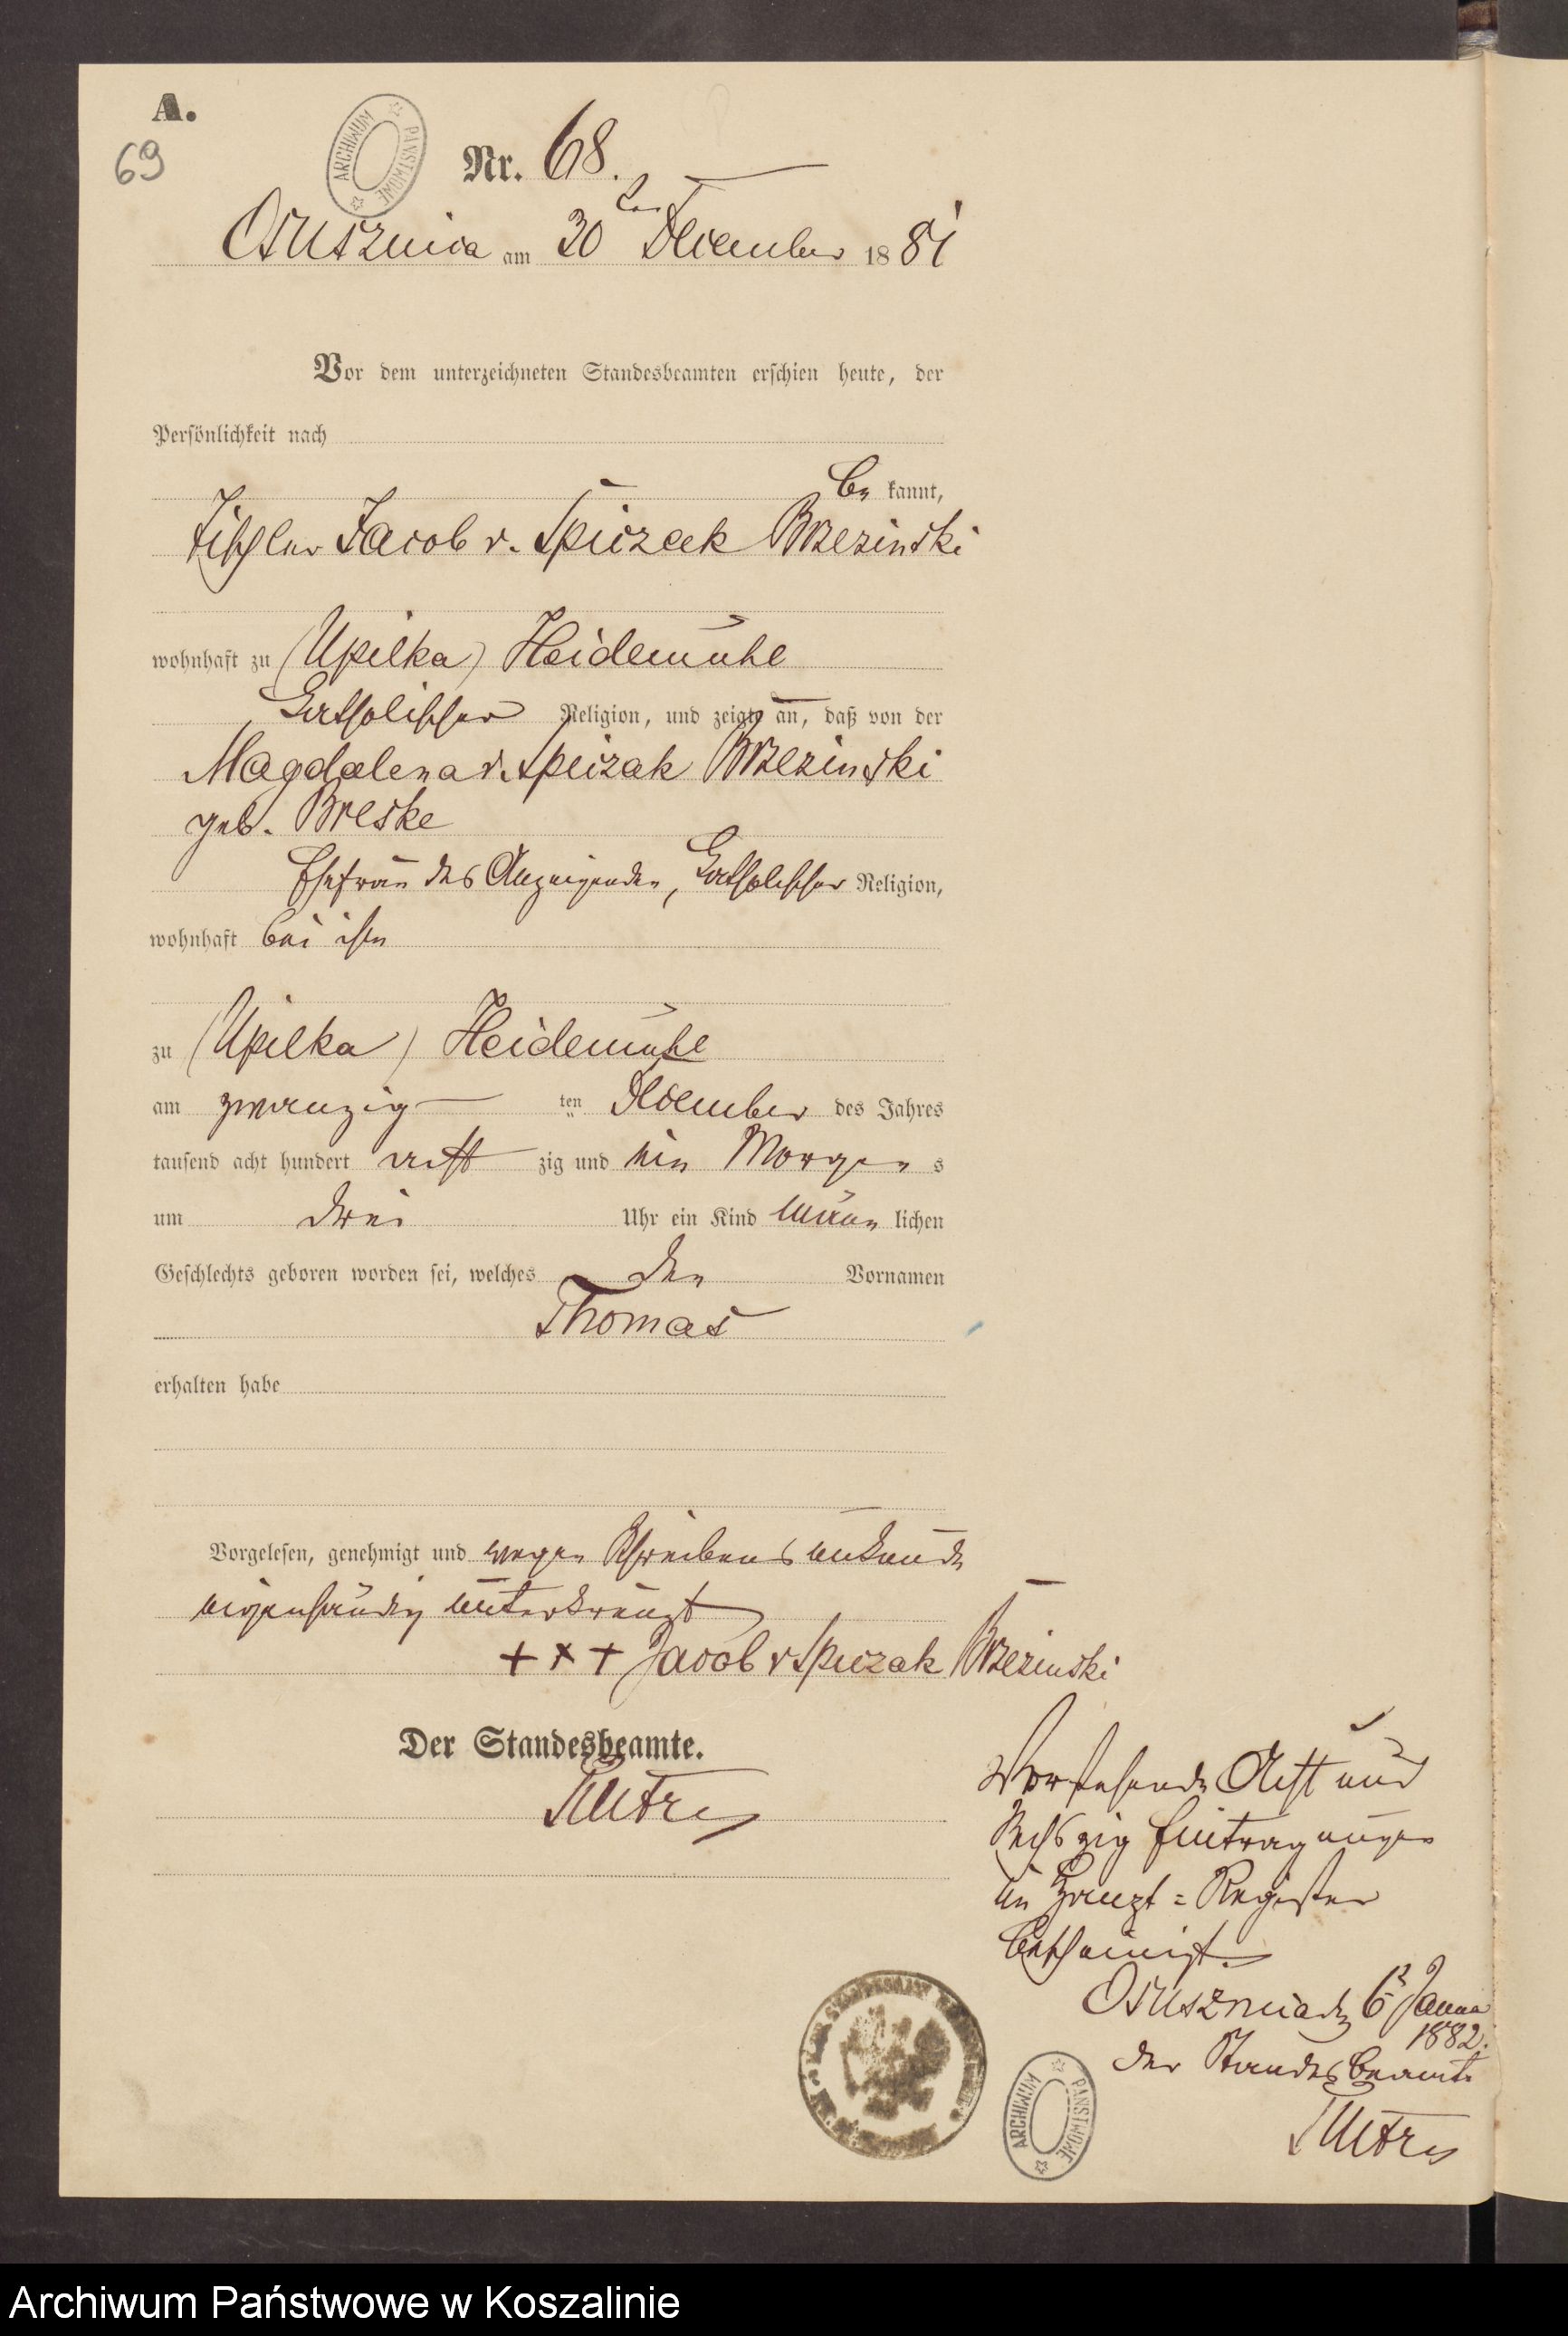 A.
69
ARCHIWUM PAŃSTWOWE
Nr. 68.
Osusznica am 30ten December 1881
Vor dem unterzeichneten Standesbeamten erschien heute, der
Persönlichkeit nach
be kannt,
Tischler Jacob v. Spiczak Brzezinski
wohnhaft zu (Upilka) Heidemühle
katholischer Religion, und zeigte an, daß von der
Magdalena v. Spiczak Brzezinski
geb. Breske
Ehefrau des Anzeigenden, katholischer Religion,
wohnhaft bei ihm
zu (Upilka) Heidemühle
am zwanzig ten December des Jahres
tausend acht hundert acht zig und ein Morgen s
um drei Uhr ein Kind männ lichen
Geschlechts geboren worden sei, welches den Vornamen
Thomas
erhalten habe
Vorgelesen, genehmigt und wegen Schreibensunkunde
eigenhändig unterkreuzt
+++ Jacob v Spiczak Brzezinski
Der Standesbeamte.
Vorstehende Acht und
Sechszig Eintragungen
im Haupt=Register
bescheinigt.
Osusznica den 6 Januar
1882.
Der Standesbeamte
ARCHIWUM PAŃSTWOWE
Archiwum Państwowe w Koszalinie